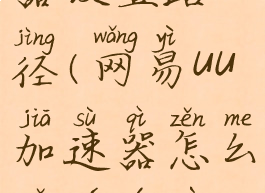 jìng wǎng yì
径(网易uu
jiā sù qì zěn me
加速器怎么